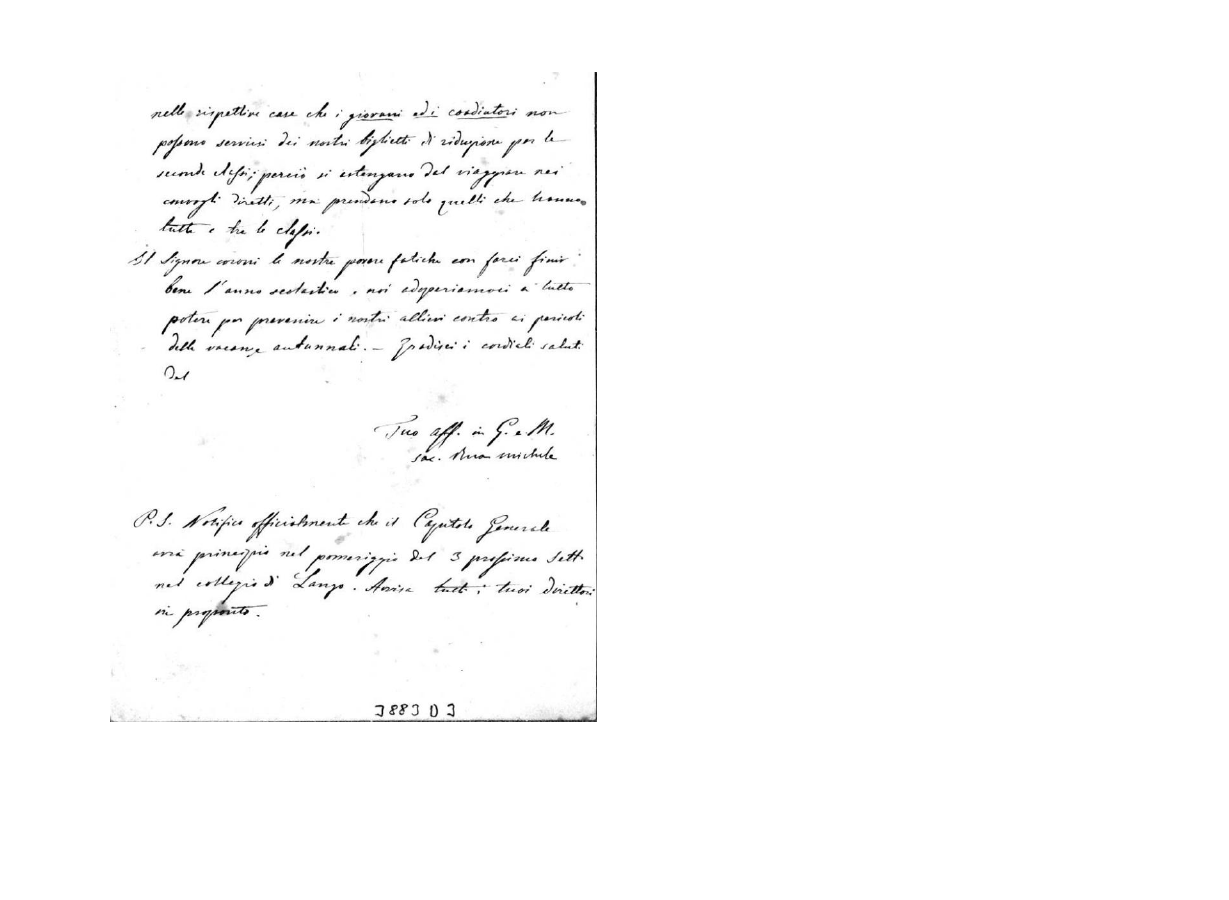 nelle rispettive case che i giovani ed i coadiutori non
possono servirsi dei nostri biglietti di riduzione per le
seconde classi; perciò si astengano dal viaggiare nei
convogli diretti, ma prendano solo quelli che hanno
tutte e tre le classi.
Il Signore coroni le nostre povere fatiche con farci finir
bene l'anno scolastico e noi adoperiamoci a tutto
potere per prevenire i nostri allievi contro ai pericoli
delle vacanze autunnali. — Gradisci i cordiali saluti
del
Tuo aff. in G. e M.
Sac. Rua Michele
P.S. Notifico officialmente che il Capitolo Generale
avrà principio nel pomeriggio del 3 prossimo Sett.
nel collegio di Lanzo. Avvisa tutti i tuoi direttori
in proposito.